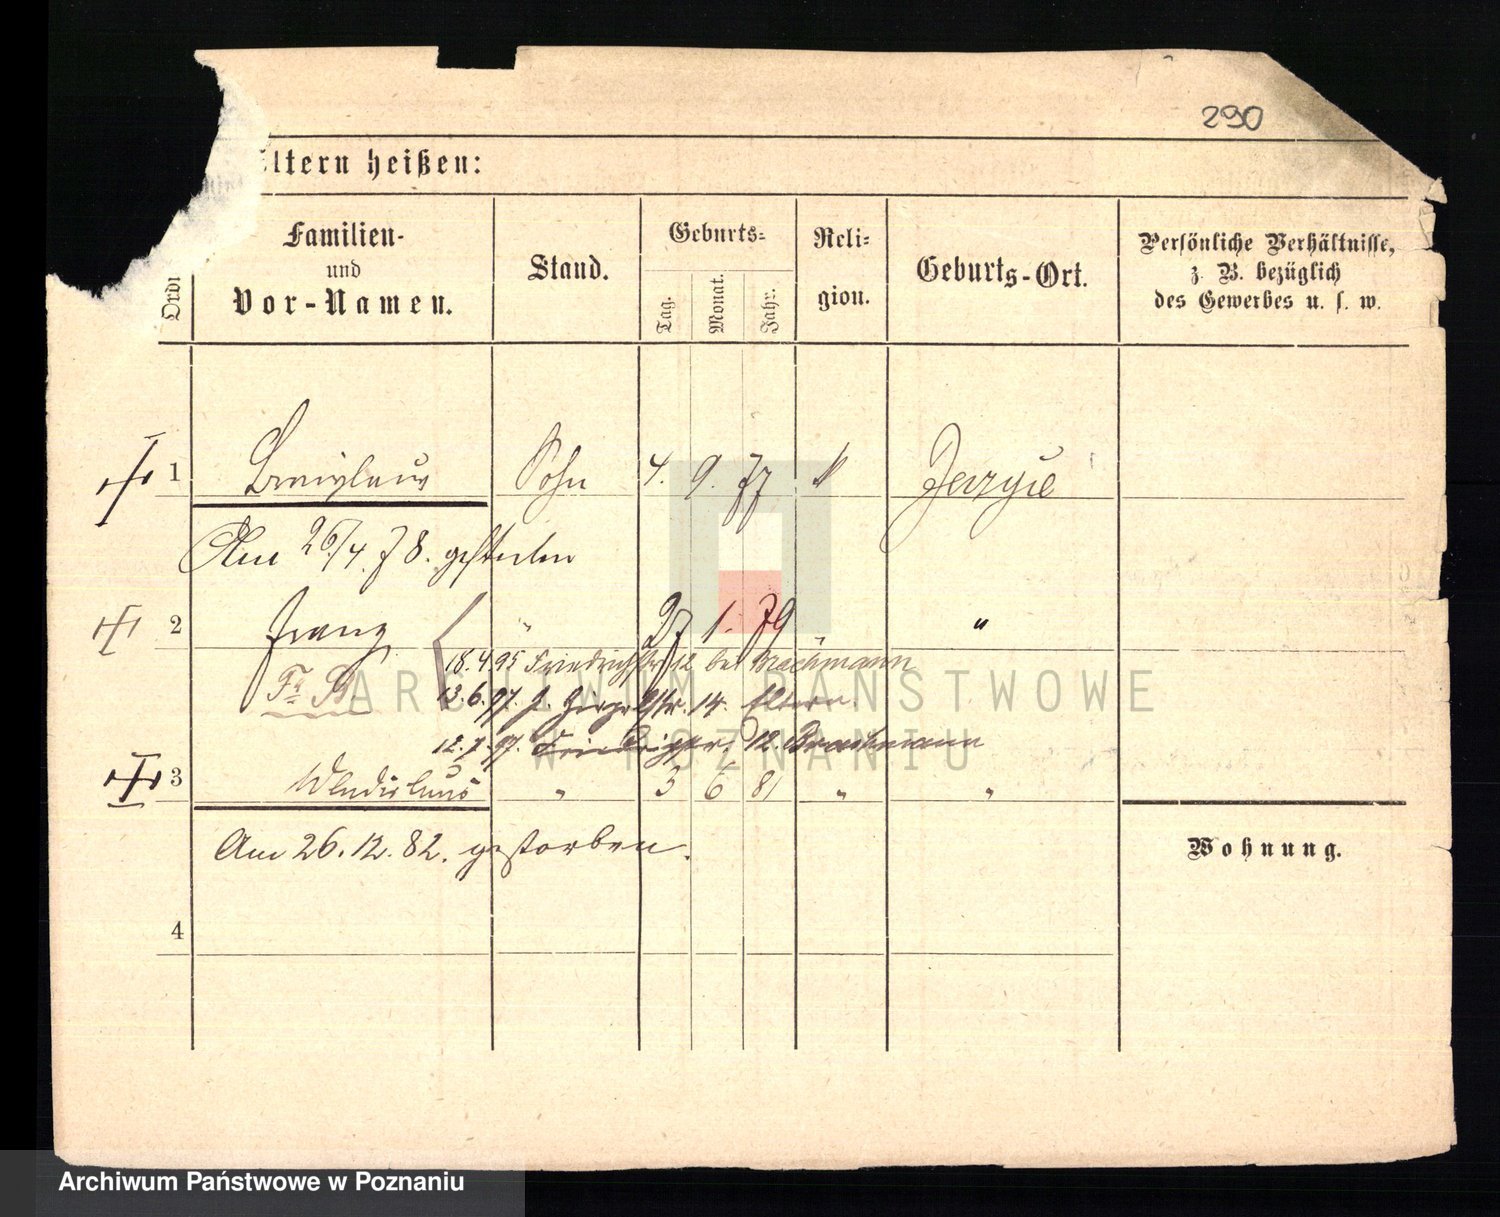 290
ltern heißen:
Familien-
und
Vor-Namen.
Stand.
Geburts-
Tag.
Monat.
Jahr.
Reli-
gion.
Geburts-Ort.
Persönliche Verhältnisse,
z. B. bezüglich
des Gewerbes u. s. w.
1 Sohn 4. 9. 77 k Jerzyce
Am 26/4. 78. gestorben
2 Franz " 27 1. 79 " "
18.4.95 Friedrichstr 12 bei
13.6.97. 14. Eltern.
12.7.97. Friedrichstr. 12.
3 Wladislaus " 3 6 81 " "
Am 26.12.82. gestorben.
Wohnung.
4
ARCHIWUM PAŃSTWOWE
W POZNANIU
Archiwum Państwowe w Poznaniu